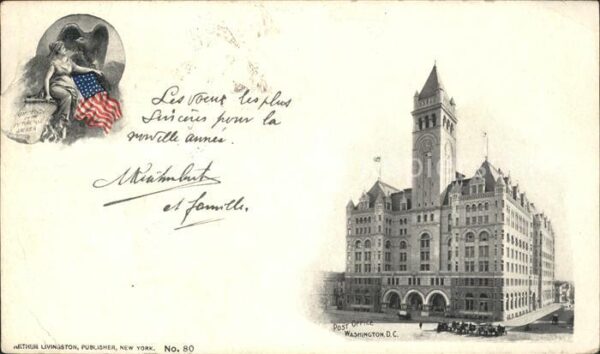 Les vœux les plus
sincères pour la
nouvelle année.
et famille.
POST OFFICE
WASHINGTON, D.C.
ARTHUR LIVINGSTON, PUBLISHER, NEW YORK. No. 80